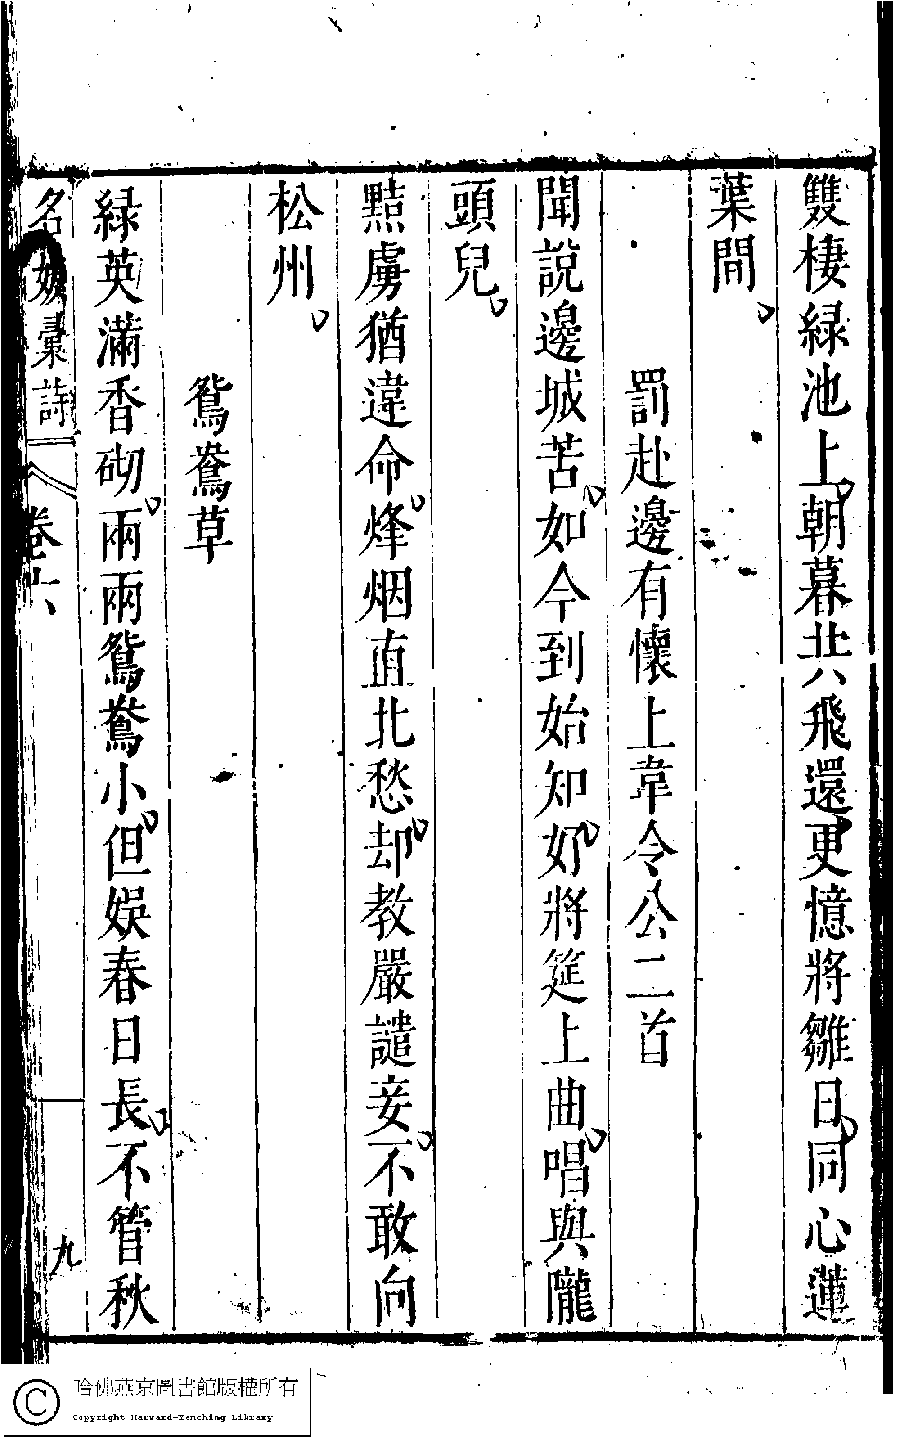 雙棲綠池上朝暮共飛還更憶將雛日同心蓮
葉間
罰赴邊有懷上韋令公二首
聞說邊城苦如今到始知好將筵上曲唱與隴
頭兒
黠虜猶違命烽烟直北愁却教嚴譴妾不敢向
松州
鴛鴦草
綠英滿香砌兩兩鴛鴦小但娛春日長不管秋
名媛彙詩 卷六 九
哈佛燕京圖書館版權所有
Copyright Harvard-Yenching Library